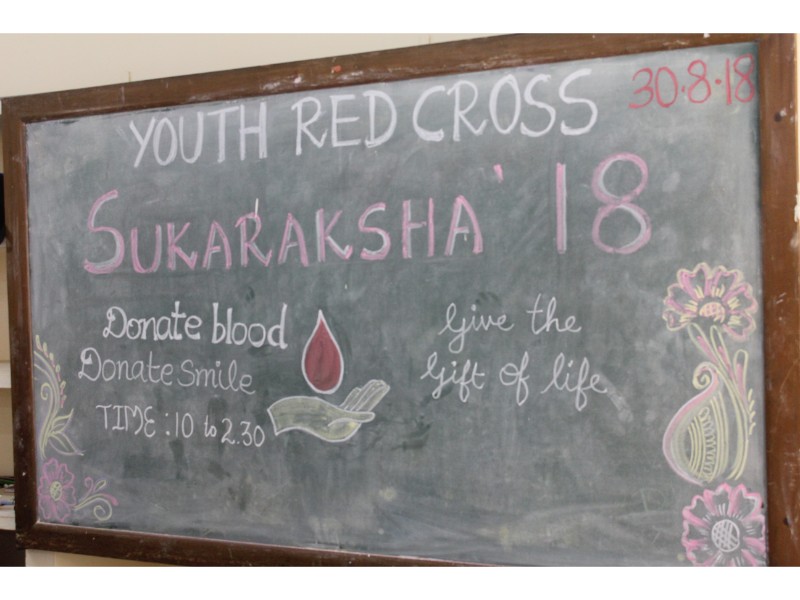 30.8.18
YOUTH RED CROSS
SUKARAKSHA '18
Donate blood
Donate Smile
TIME : 10 to 2.30
Give the
Gift of life